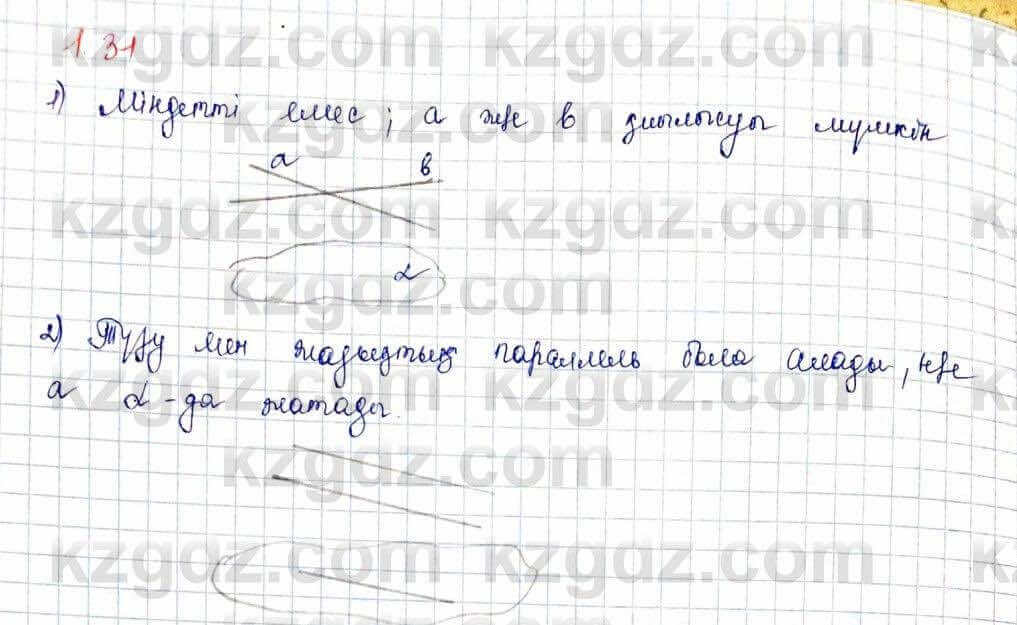 1.31
1) Міндетті емес; а және в қиылысуы мүмкін
а в
α
2) Түзу мен жазықтық параллель бола алады, не
а α-да жатады.
kzgdz.com